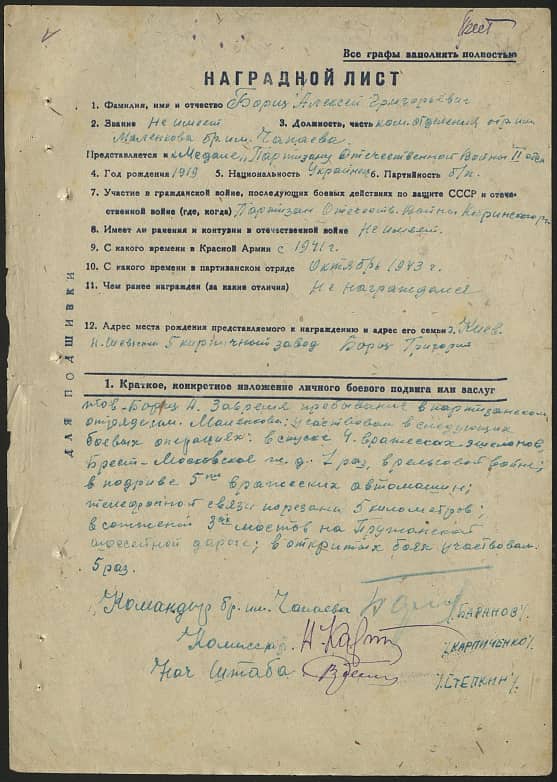 Брест
Все графы заполнять полностью
НАГРАДНОЙ ЛИСТ
1. Фамилия, имя и отчество Борщ Алексей Григорьевич
2. Звание Не имеет 3. Должность, часть ком. отделения отр. им.
Маленкова бр. им. Чапаева.
Представляется к „Медале" Партизану Отечественной Войны II степ.
4. Год рождения 1919 5. Национальность Украинец 6. Партийность б/п.
7. Участие в гражданской войне, последующих боевых действиях по защите СССР и отече-
ственной войне (где, когда) Партизан Отечеств. Войны
8. Имеет ли ранения и контузии в отечественной войне Не имеет.
9. С какого времени в Красной Армии с 1941 г.
10. С какого времени в партизанском отряде Октябрь 1943 г.
11. Чем ранее награжден (за какие отличия) Не награждался
12. Адрес места рождения представляемого к награждению и адрес его семьи г. Киев.
5 кирпичный завод Борщ Григорий
ДЛЯ ПОДШИВКИ
1. Краткое, конкретное изложение личного боевого подвига или заслуг
тов. Борщ А. За время пребывание в партизанском
отряде им. Маленкова: участвовал в следующих
боевых операциях: в спуске 4. вражеских эшелонов,
Брест-Московское ж. д. 1 раз, в рельсовой войне;
в подриве 5ти вражеских автомашин;
телефонной связи порезано 5 километров;
в сожжении 3ох мостов на Пружанской
шоссейной дороге; в открытых боях участвовал
5 раз.
Командир бр. им. Чапаева /БАРАНОВ/.
Комиссар /КАРПИЧЕНКО/
Нач Штаба /СТЕПКИН/.